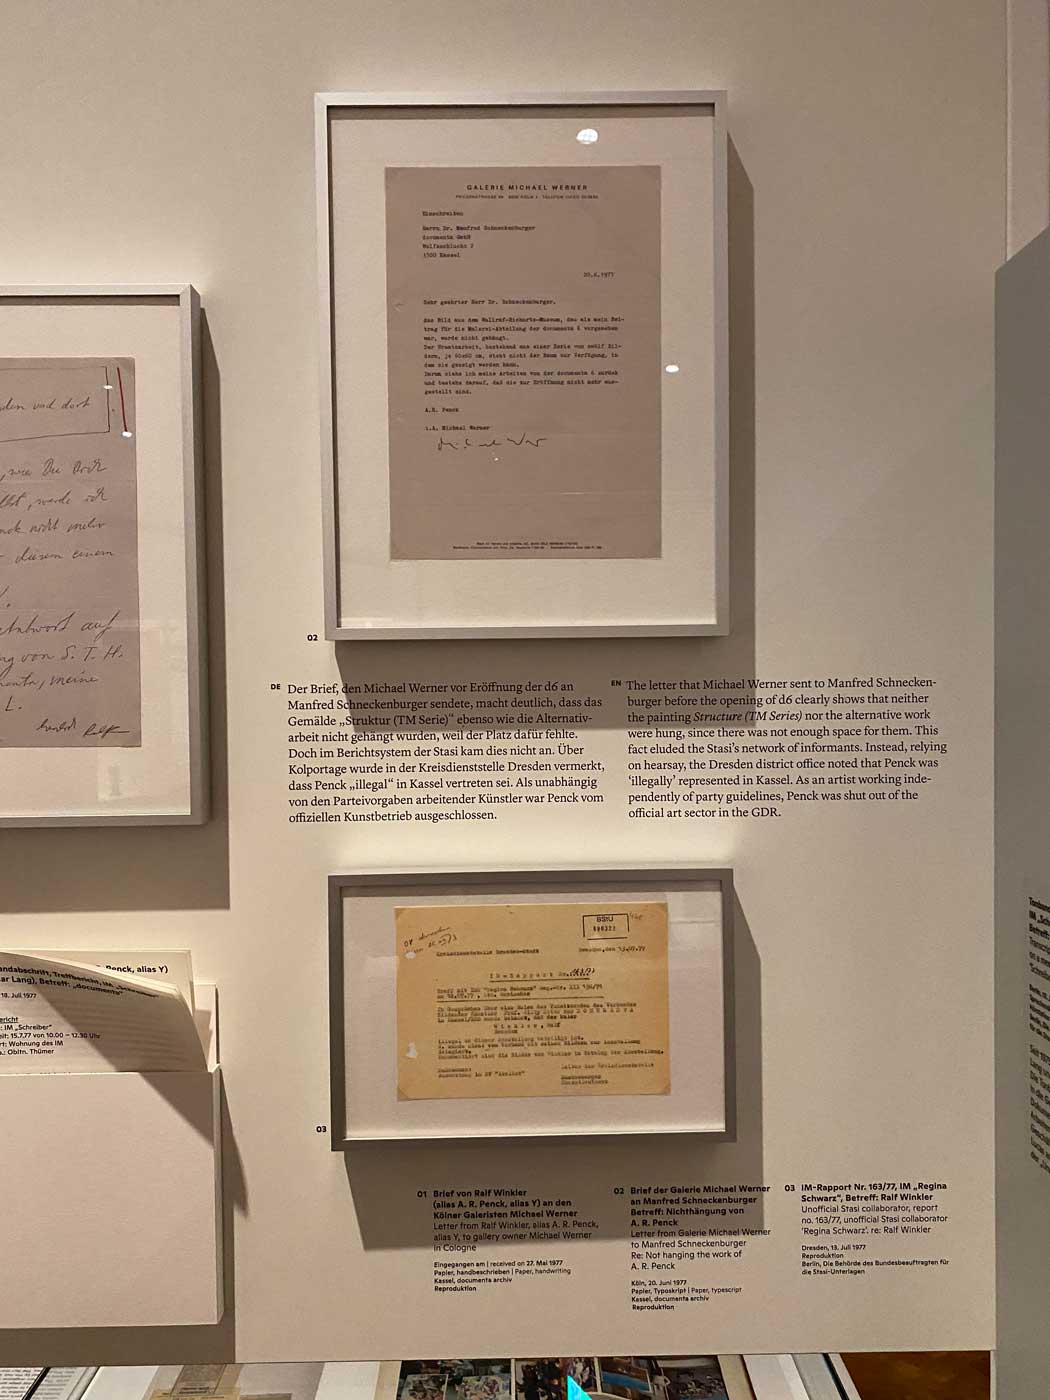 GALERIE MICHAEL WERNER
Einschreiben
Herrn Dr. Manfred Schneckenburger
documenta GmbH
Wolfsschlucht 2
3500 Kassel
20.6.1977
Sehr geehrter Herr Dr. Schneckenburger,
das Bild aus dem Wallraf-Richartz-Museum, das als mein Bei-
trag für die Malerei-Abteilung der documenta 6 vorgesehen
war, wurde nicht gehängt.
Der Ersatzarbeit, bestehend aus einer Serie von zwölf Bil-
dern, je 60x60 cm, steht nicht der Raum zur Verfügung, in
dem sie gezeigt werden kann.
Darum ziehe ich meine Arbeiten von der documenta 6 zurück
und bestehe darauf, daß sie zur Eröffnung nicht mehr aus-
gestellt sind.
A.R. Penck
i.A. Michael Werner
den und dort
, wie Du Dich
werde ich
nicht mehr
diesem einem
Antwort auf
von S. T. H.
meine
L.
02
DE Der Brief, den Michael Werner vor Eröffnung der d6 an
Manfred Schneckenburger sendete, macht deutlich, dass das
Gemälde „Struktur (TM Serie)“ ebenso wie die Alternativ-
arbeit nicht gehängt wurden, weil der Platz dafür fehlte.
Doch im Berichtsystem der Stasi kam dies nicht an. Über
Kolportage wurde in der Kreisdienststelle Dresden vermerkt,
dass Penck „illegal“ in Kassel vertreten sei. Als unabhängig
von den Parteivorgaben arbeitender Künstler war Penck vom
offiziellen Kunstbetrieb ausgeschlossen.
EN The letter that Michael Werner sent to Manfred Schnecken-
burger before the opening of d6 clearly shows that neither
the painting Structure (TM Series) nor the alternative work
were hung, since there was not enough space for them. This
fact eluded the Stasi’s network of informants. Instead, relying
on hearsay, the Dresden district office noted that Penck was
‘illegally’ represented in Kassel. As an artist working inde-
pendently of party guidelines, Penck was shut out of the
official art sector in the GDR.
BStU
Kreisdienststelle Dresden-Stadt
Dresden, den 13.07.77
IM-Rapport Nr. 163/77
Treff mit IMS "Regina Schwarz"
Winkler, Ralf
Dresden
illegal an dieser Ausstellung beteiligt ist.
Leiter der Kreisdienststelle
03
Penck, alias Y)
Betreff: „documenta“
18. Juli 1977
: IM „Schreiber“
15.7.77 von 10.00 – 12.30 Uhr
Wohnung des IM
Obltn. Thümer
01 Brief von Ralf Winkler
(alias A. R. Penck, alias Y) an den
Kölner Galeristen Michael Werner
Letter from Ralf Winkler, alias A. R. Penck,
alias Y, to gallery owner Michael Werner
in Cologne
Eingegangen am | received on 27. Mai 1977
Papier, handbeschrieben | Paper, handwriting
Kassel, documenta archiv
Reproduktion
02 Brief der Galerie Michael Werner
an Manfred Schneckenburger
Betreff: Nichthängung von
A. R. Penck
Letter from Galerie Michael Werner
to Manfred Schneckenburger
Re: Not hanging the work of
A. R. Penck
Köln, 20. Juni 1977
Papier, Typoskript | Paper, typescript
Kassel, documenta archiv
Reproduktion
03 IM-Rapport Nr. 163/77, IM „Regina
Schwarz“, Betreff: Ralf Winkler
Unofficial Stasi collaborator, report
no. 163/77, unofficial Stasi collaborator
‘Regina Schwarz’. re: Ralf Winkler
Dresden, 13. Juli 1977
Reproduktion
Berlin, Die Behörde des Bundesbeauftragten für
die Stasi-Unterlagen